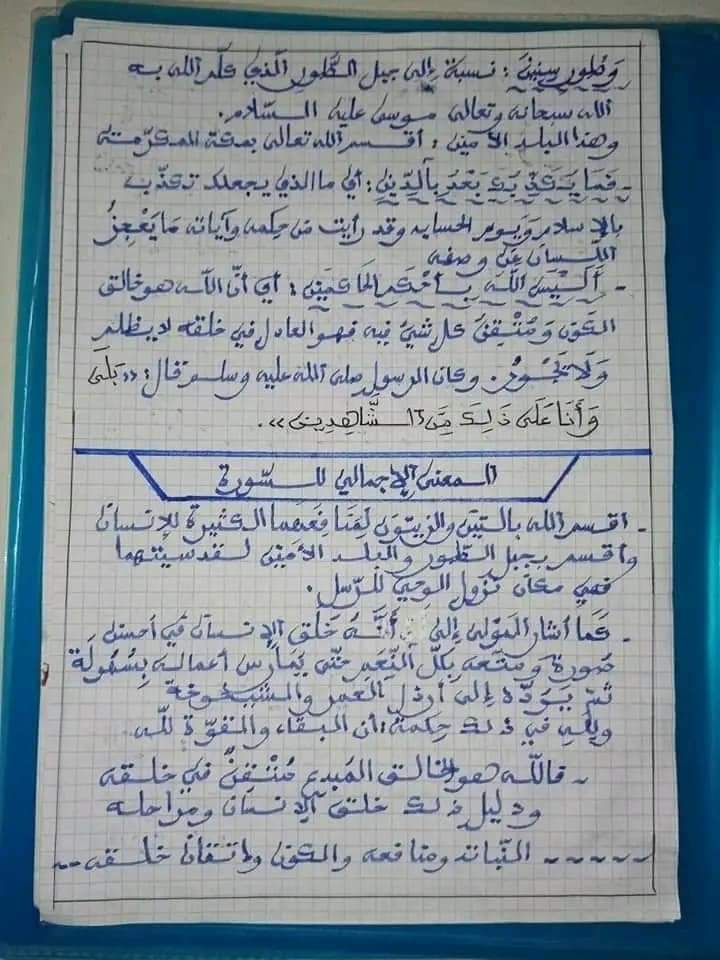 وَطُورِ سِينِينَ : نسبة إلى جبل الطّور الّذي كلّم الله به
الله سبحانه وتعالى موسى عليه السّلام.
وهذا البلد الأمين : أقسم الله تعالى بمكة المكرّمة
- فَمَا يُكَذِّبُكَ بَعْدُ بِالدِّينِ : أي ما الذي يجعلك تكذّب
بالإسلام وَيوم الحساب وقد رأيت من حِكمه وآياته مَا يَعْجِزُ
اللّسان عَن وصفه
- أَلَيْسَ اللَّهُ بِأَحْكَمِ الحَاكِمِينَ : أي أنّ الله هو خالق
الكون وَمُتْقِنُ كل شيئ فيه فهو العادل في خلقه لا يظلم
وَلَا يَجُورُ. وكان الرسول صلى الله عليه وسلم قال: «بَلَى
وَأَنَا عَلَى ذَلِكَ مِنَ الشَّاهِدِينَ».
المعنى الإجمالي للسّورة
- أقسم الله بالتّين والزيتون لِمَنَافِعِهما الكثيرة للإنسان
وأقسم بجبل الطّور والبلد الأمين لقدسيتهما
فهي مكان نزول الوحي للرّسل.
- كما أشار المَوْلى إلى أَنَّهُ خَلَق الإنسان في أحسن
صُورة ومتّعه بكلّ النِّعَمِ حتّى يُمارس أعماله بِسُهُولَة
ثمّ يَرُدّه إلى أرذل العمر والشيخوخة
ولله في ذلك حِكمة : أن البقاء والقوّة للّه.
- فاللّه هو الخالق المُبدع مُتْقِنٌ في خلقه
ودليل ذلك خلق الإنسان ومراحله
----- النّبات ومنافعه والكون وإتقان خلقه --